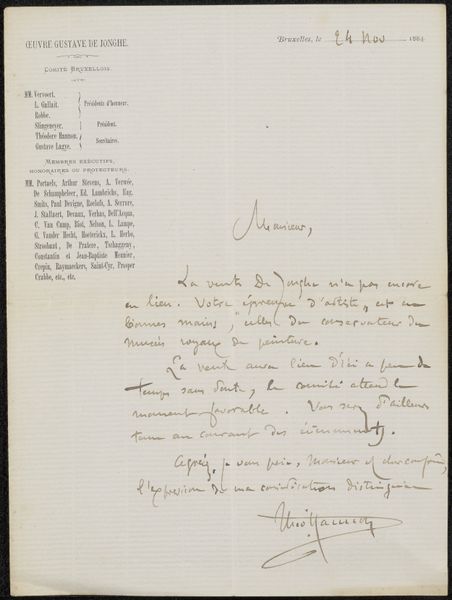 ŒUVRE GUSTAVE DE JONGHE.
COMITÉ BRUXELLOIS
MM. Vervoort.
L. Gallait.
Robbe.
Présidents d'honneur.
Slingeneyer.
Président.
Théodore Hannon.
Gustave Lagye.
Secrétaires.
MEMBRES EXÉCUTIFS,
HONORAIRES OU PROTECTEURS.
MM. Portaels, Arthur Stevens, A. Verwée,
De Schampheleer, Ed. Lambrichs, Eug.
Smits, Paul Devigne, Roelofs, A. Serrure,
J. Stallaert, Devaux, Verhas, Dell'Acqua,
C. Van Camp, Biot, Nelson, L. Lampe,
G. Vander Hecht, Hœterickx, L. Herbo,
Stroobant, De Pratere, Tschaggeny,
Constantin et Jean-Baptiste Meunier,
Crepin, Raymaeckers, Saint-Cyr, Prosper
Crabbe, etc., etc.
Bruxelles, le 24 Nov 1884
Monsieur,
La vente de Jonghe n'a pas encore
eu lieu. Votre épreuve d'artiste, est en
bonnes mains, celles du conservateur du
musées royaux de peinture.
La vente aura lieu d'ici à peu de
temps sans doute, le comité attend le
moment favorable. Vous serez d'ailleurs
tenu au courant des événements.
Agréez, je vous prie, Monsieur et cher confrère,
l'expression de ma considération distinguée
Théo Hannon